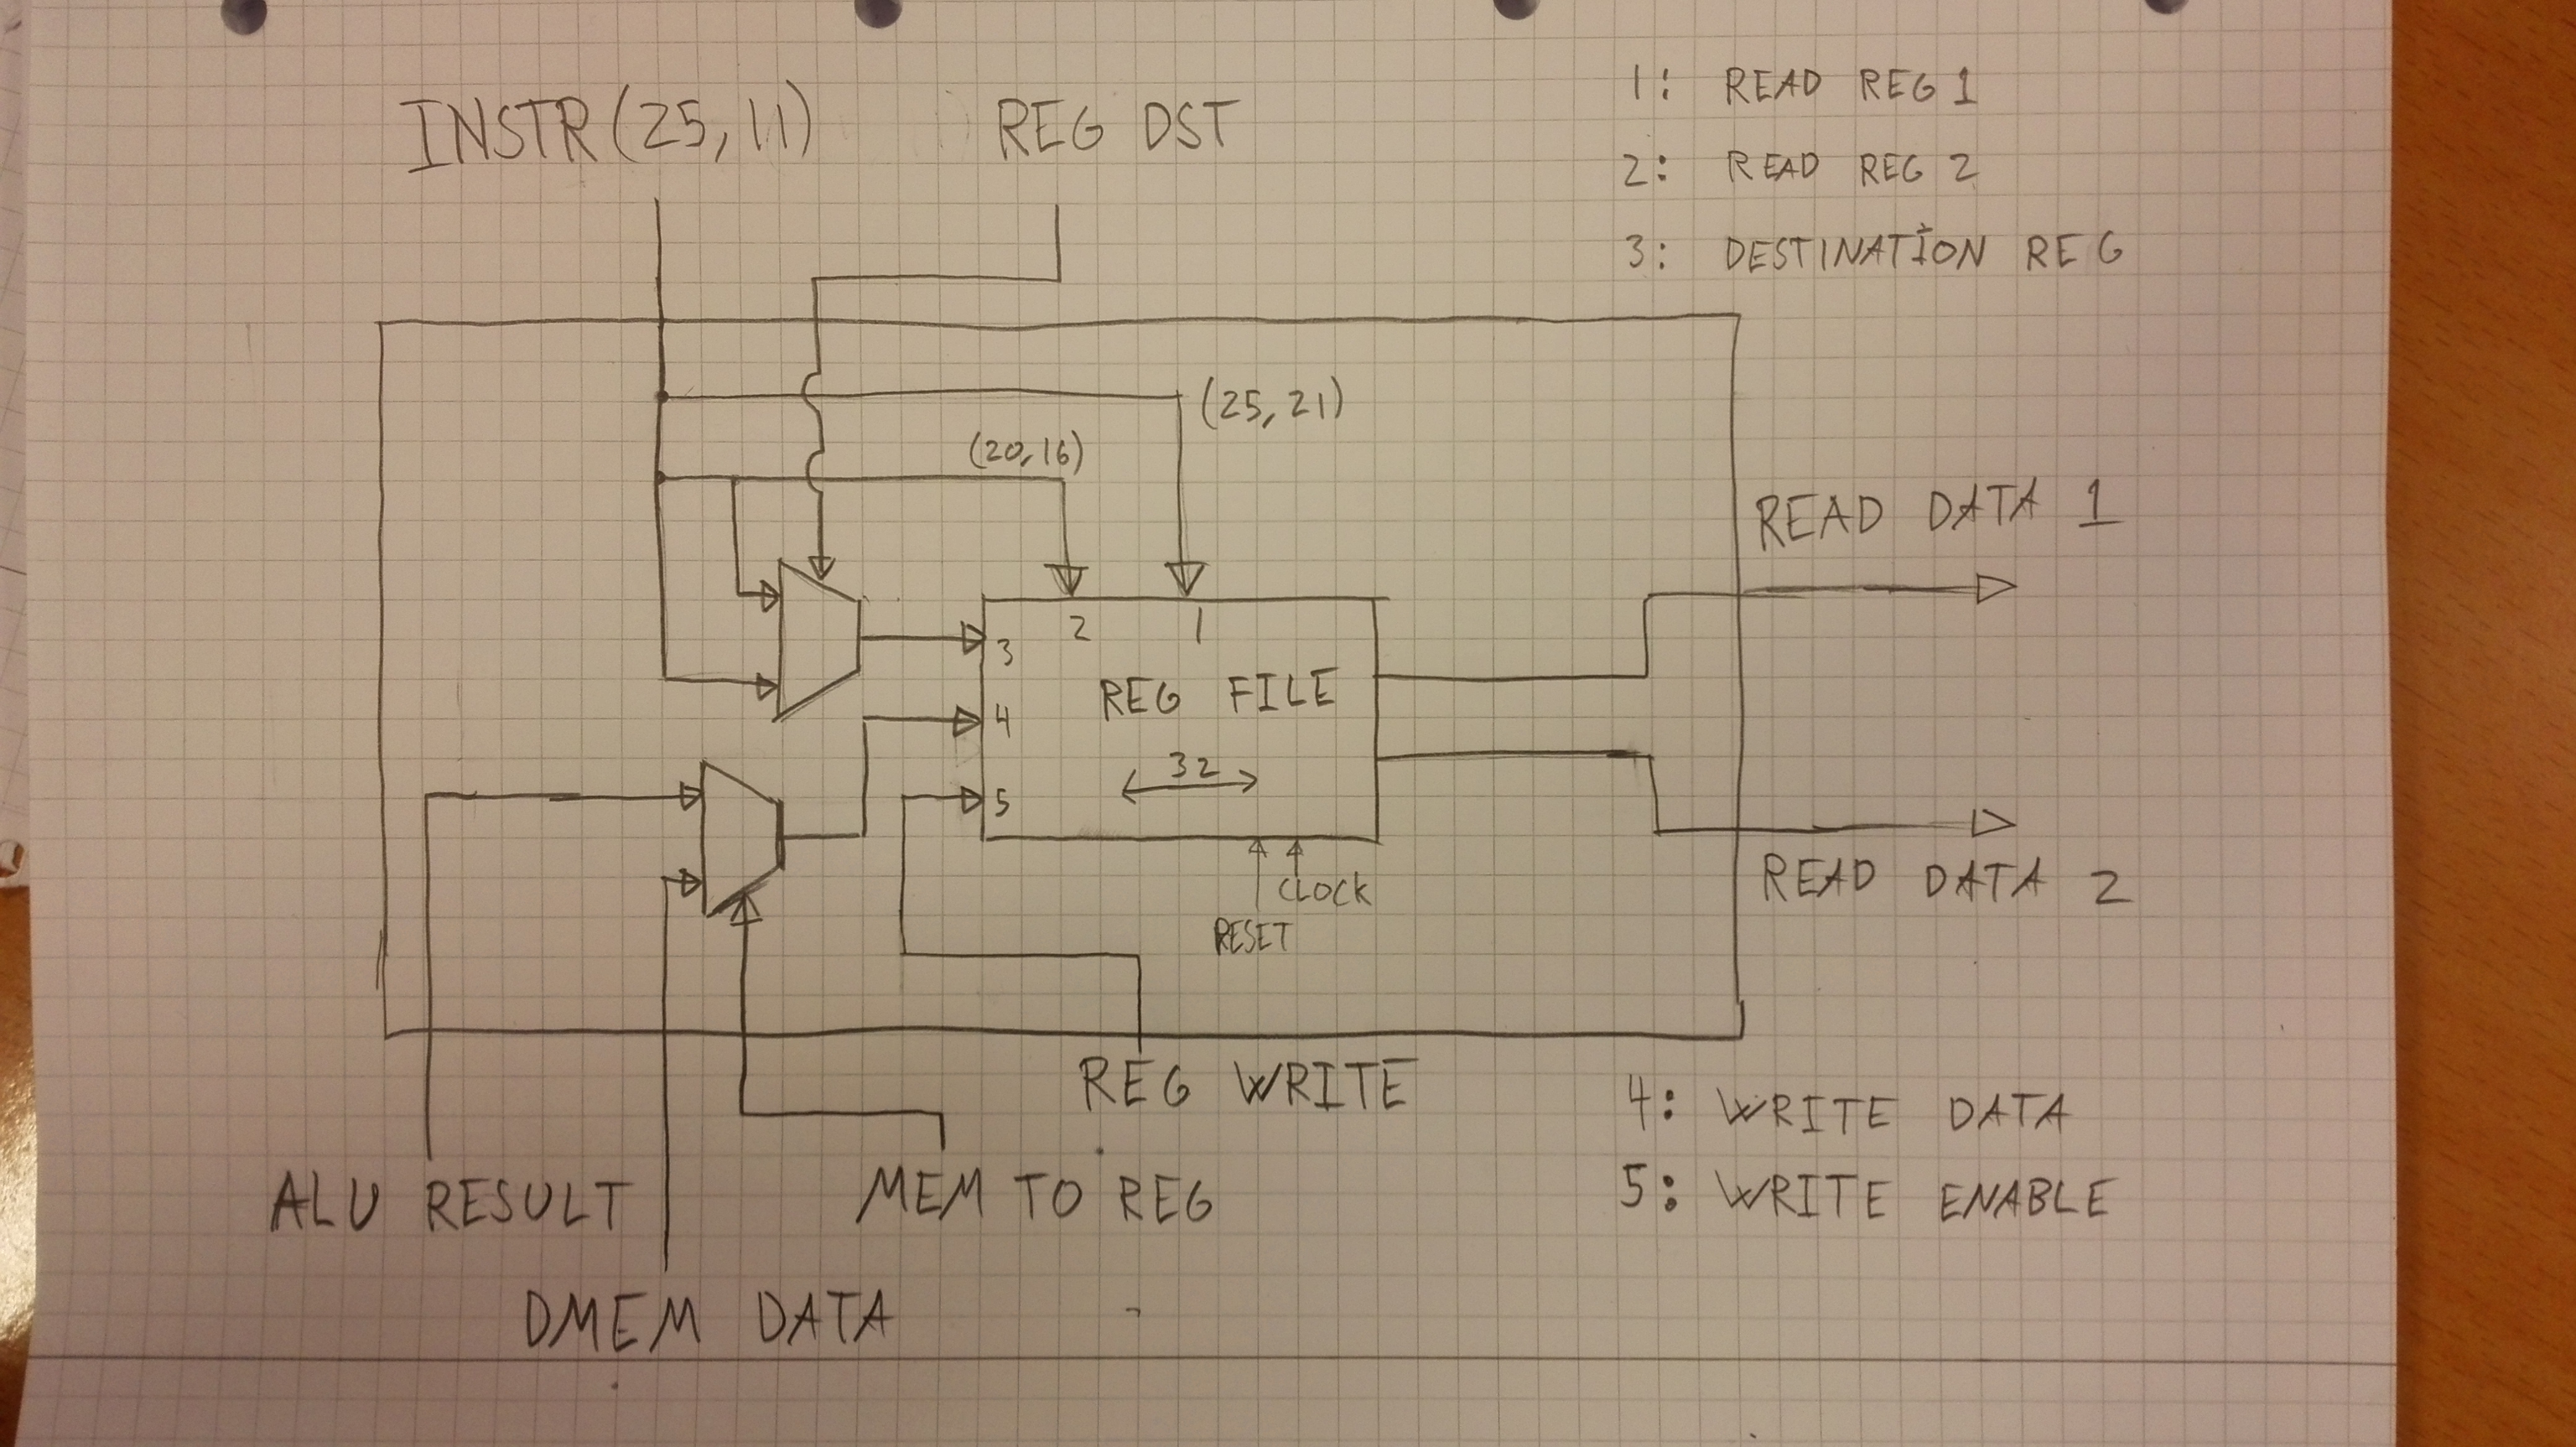 INSTR(25,11)
REG DST
1: READ REG 1
2: READ REG 2
3: DESTINATION REG
(25,21)
(20,16)
READ DATA 1
2
1
3
REG FILE
4
32
5
CLOCK
RESET
READ DATA 2
REG WRITE
4: WRITE DATA
5: WRITE ENABLE
ALU RESULT
MEM TO REG
DMEM DATA